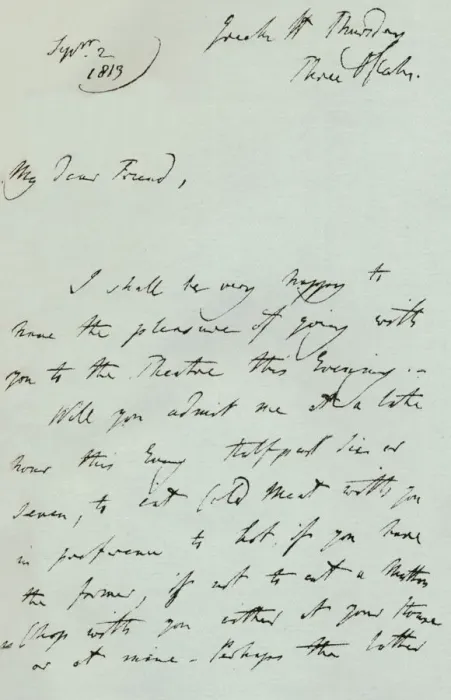 Greek St Thursday
Three OClock.
Septr. 2
1813
My dear Friend,
I shall be very happy to
have the pleasure of going with
you to the Theatre this Evening. –
Will you admit me at a late
hour this Eveng halfpast Six or
Seven, to eat Cold Meat with you
in preference to hot, if you have
the former, if not to eat a Mutton
Chop with you either at your House
or at mine – Perhaps the latter